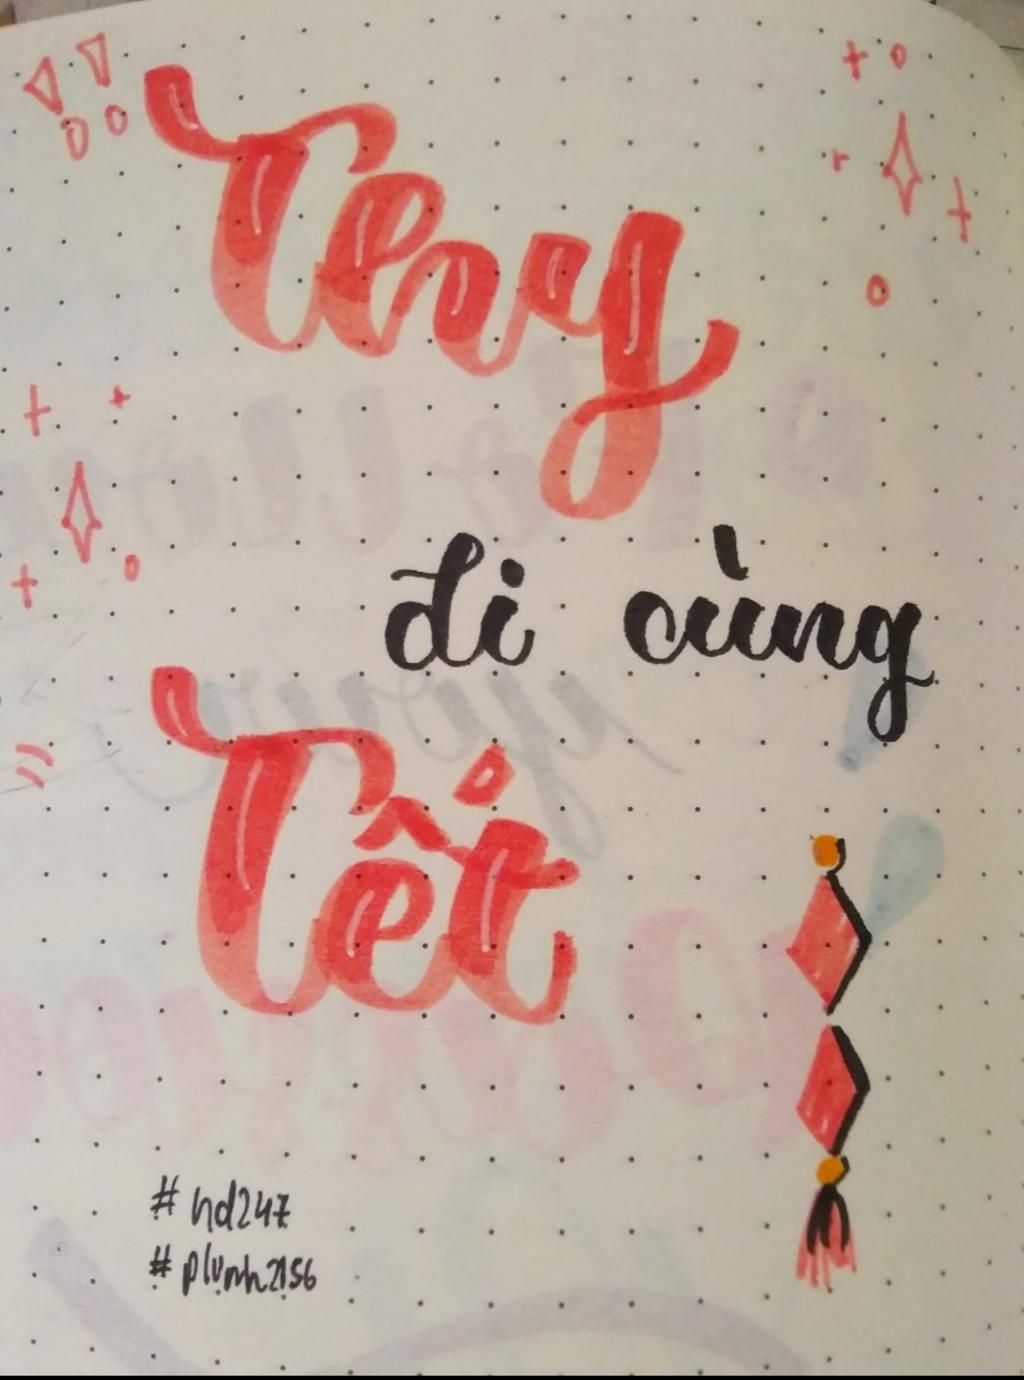 Thy
đi cùng
Tết
# hd247
# plunh2156